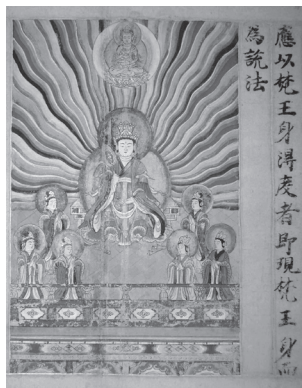 應以梵王身淂度者即現梵王身而
為說法